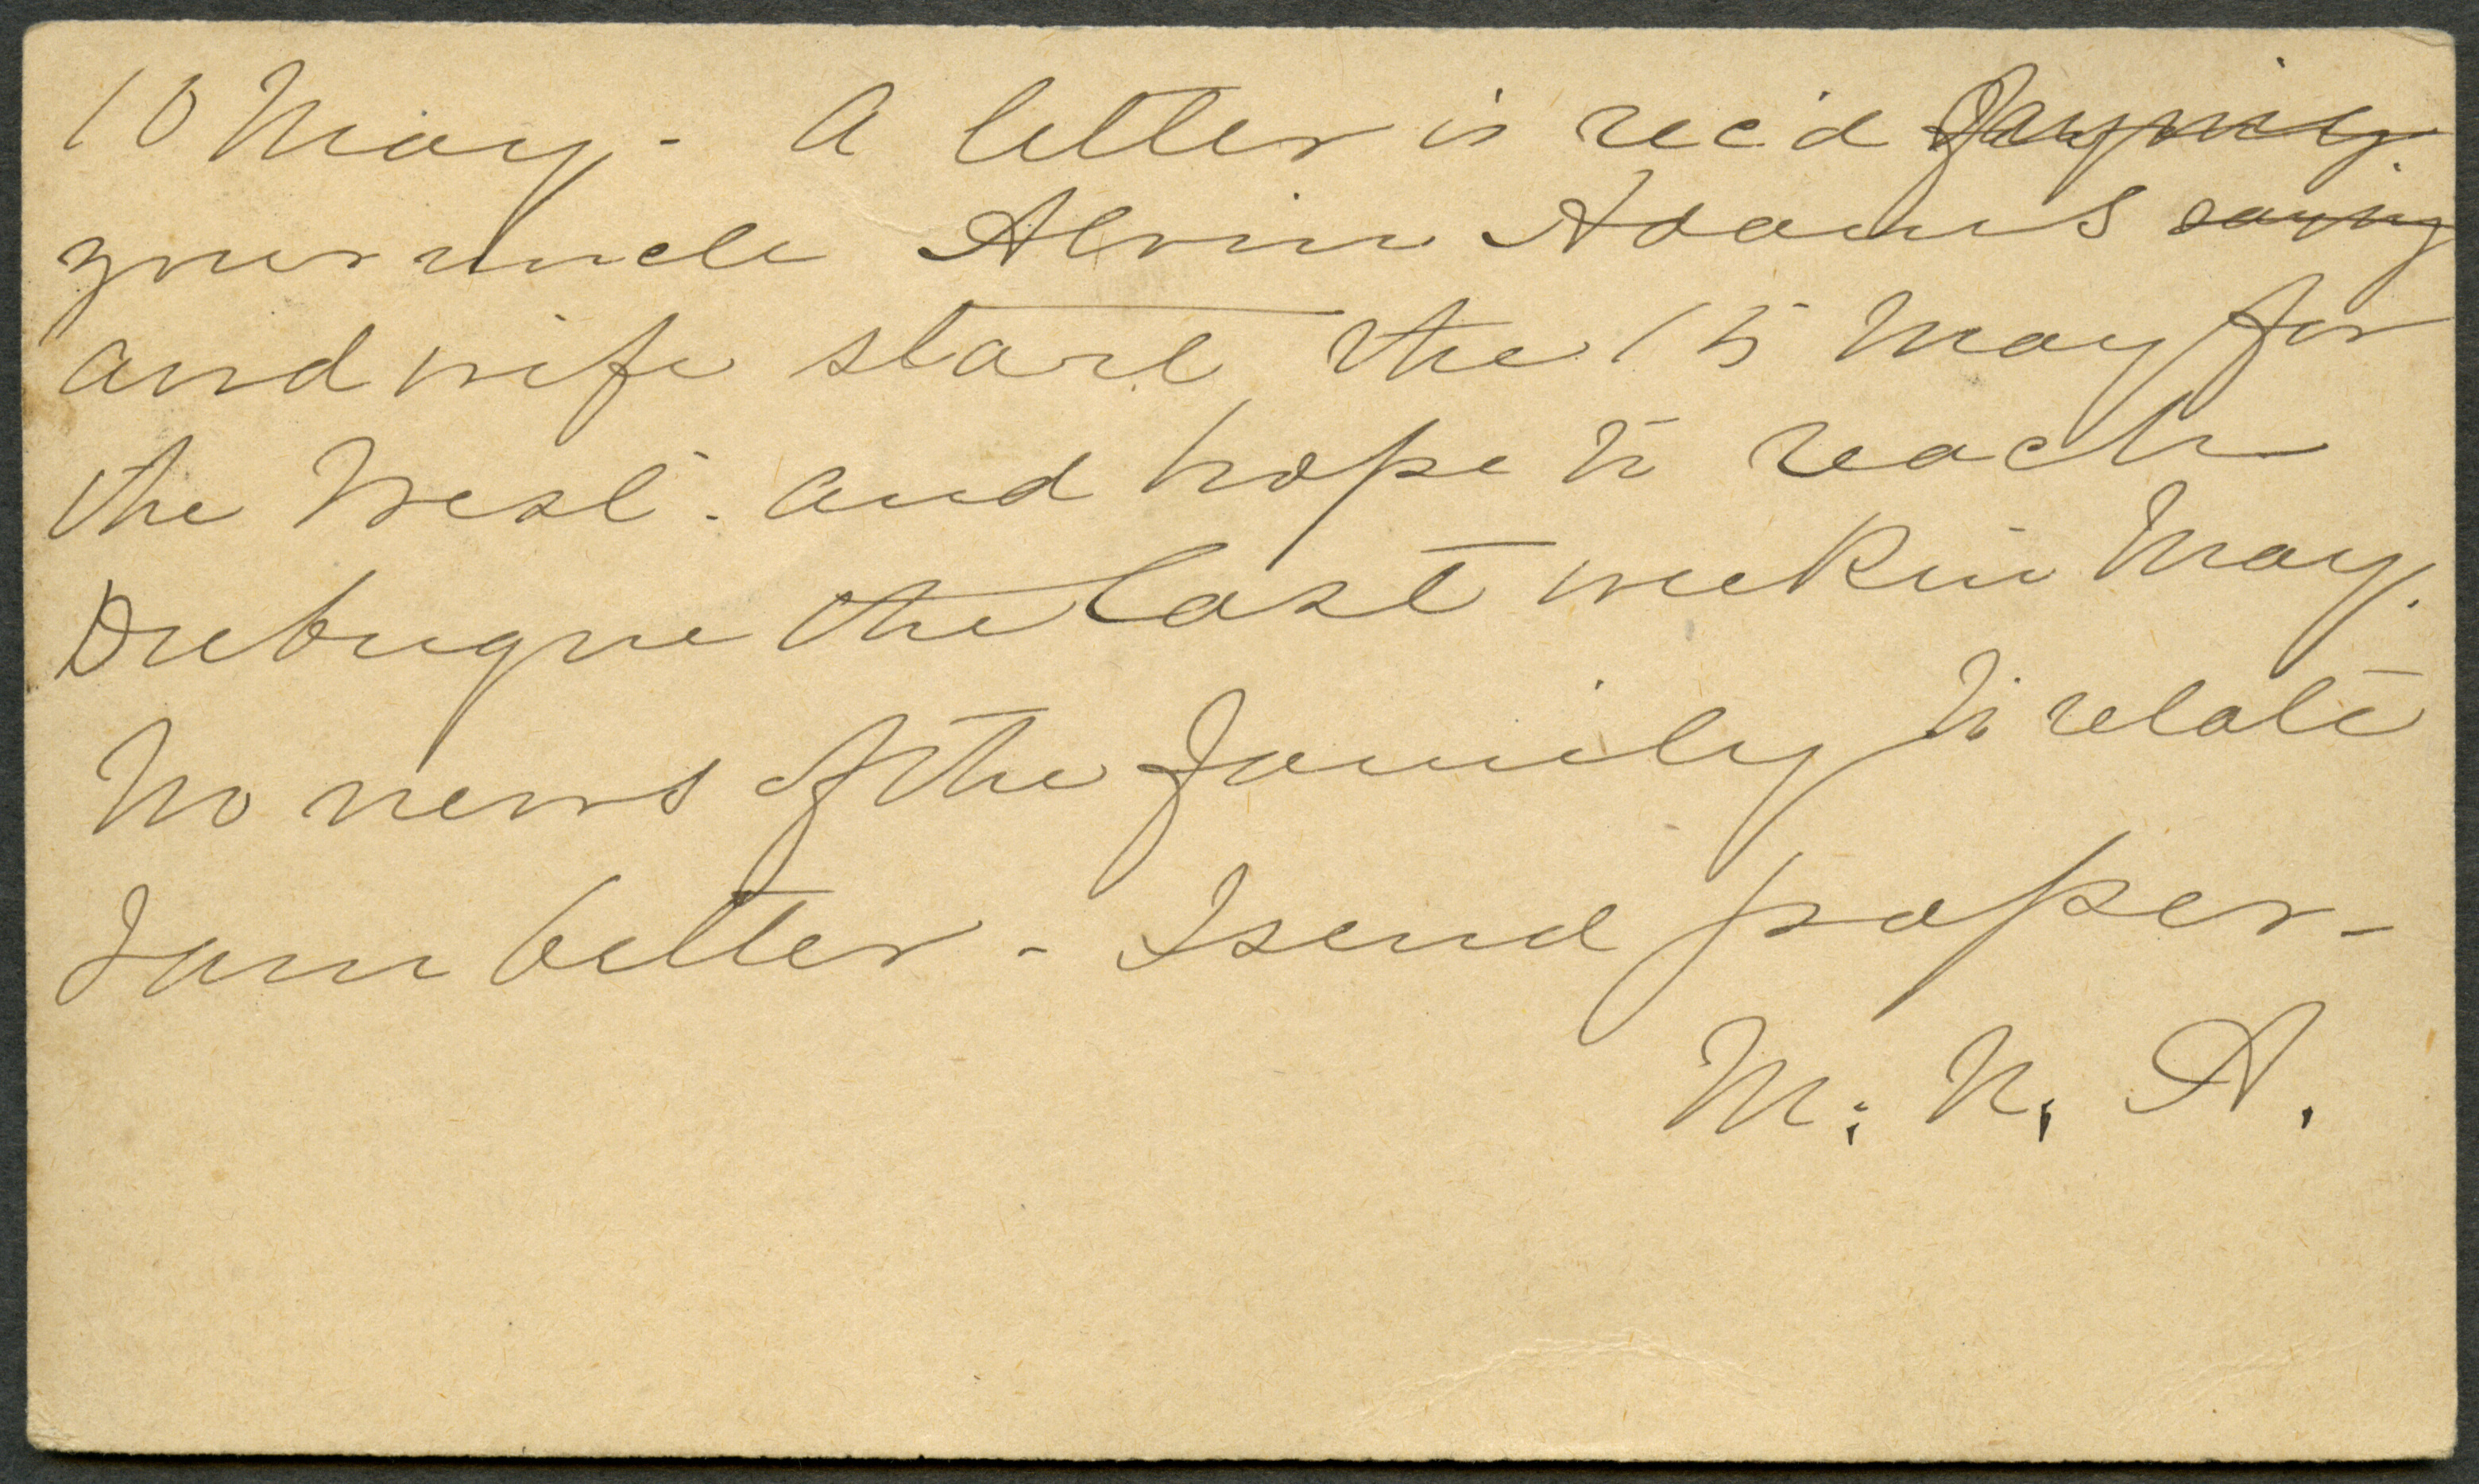 10 May - A letter is rec'd saying
your uncle Alvin Adams saying
and wife start the 15 May for
the West. and hope to reach
Dubuque the last week in May.
No news of the family to relate
I am better - I send paper -
M. N. A.